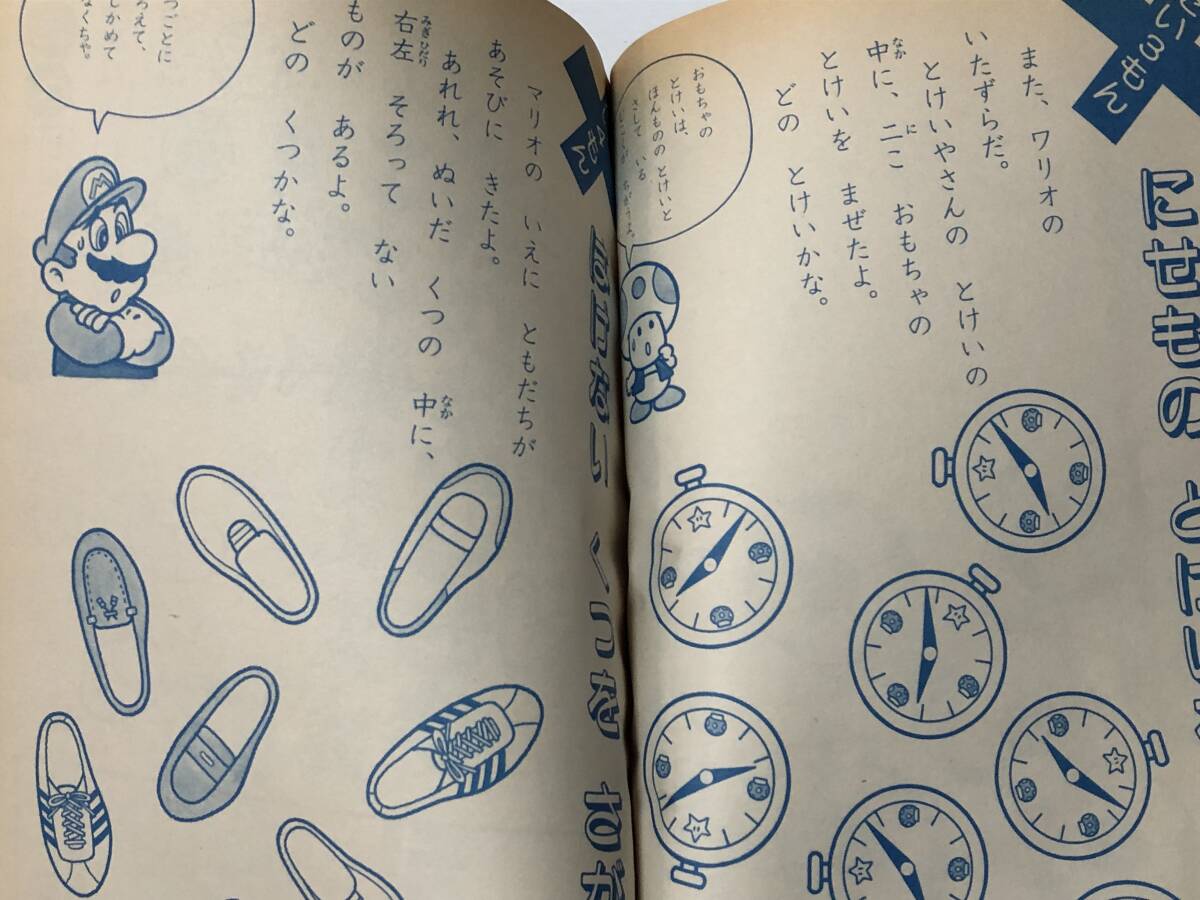 い3もん
にせもの とけい
また、ワリオの
いたずらだ。
とけいやさんの とけいの
中に、二こ おもちゃの
とけいを まぜたよ。
どの とけいかな。
なか
に
おもちゃの
とけいは、
ほんものの とけいと
さして いる
もん
ない くつを
マリオの いえに ともだちが
あそびに きたよ。
あれれ、ぬいだ くつの 中に、
右左 そろって ない
ものが あるよ。
どの くつかな。
なか
みぎひだり
つごとに
ろえて、
しかめて
なくちゃ。
M